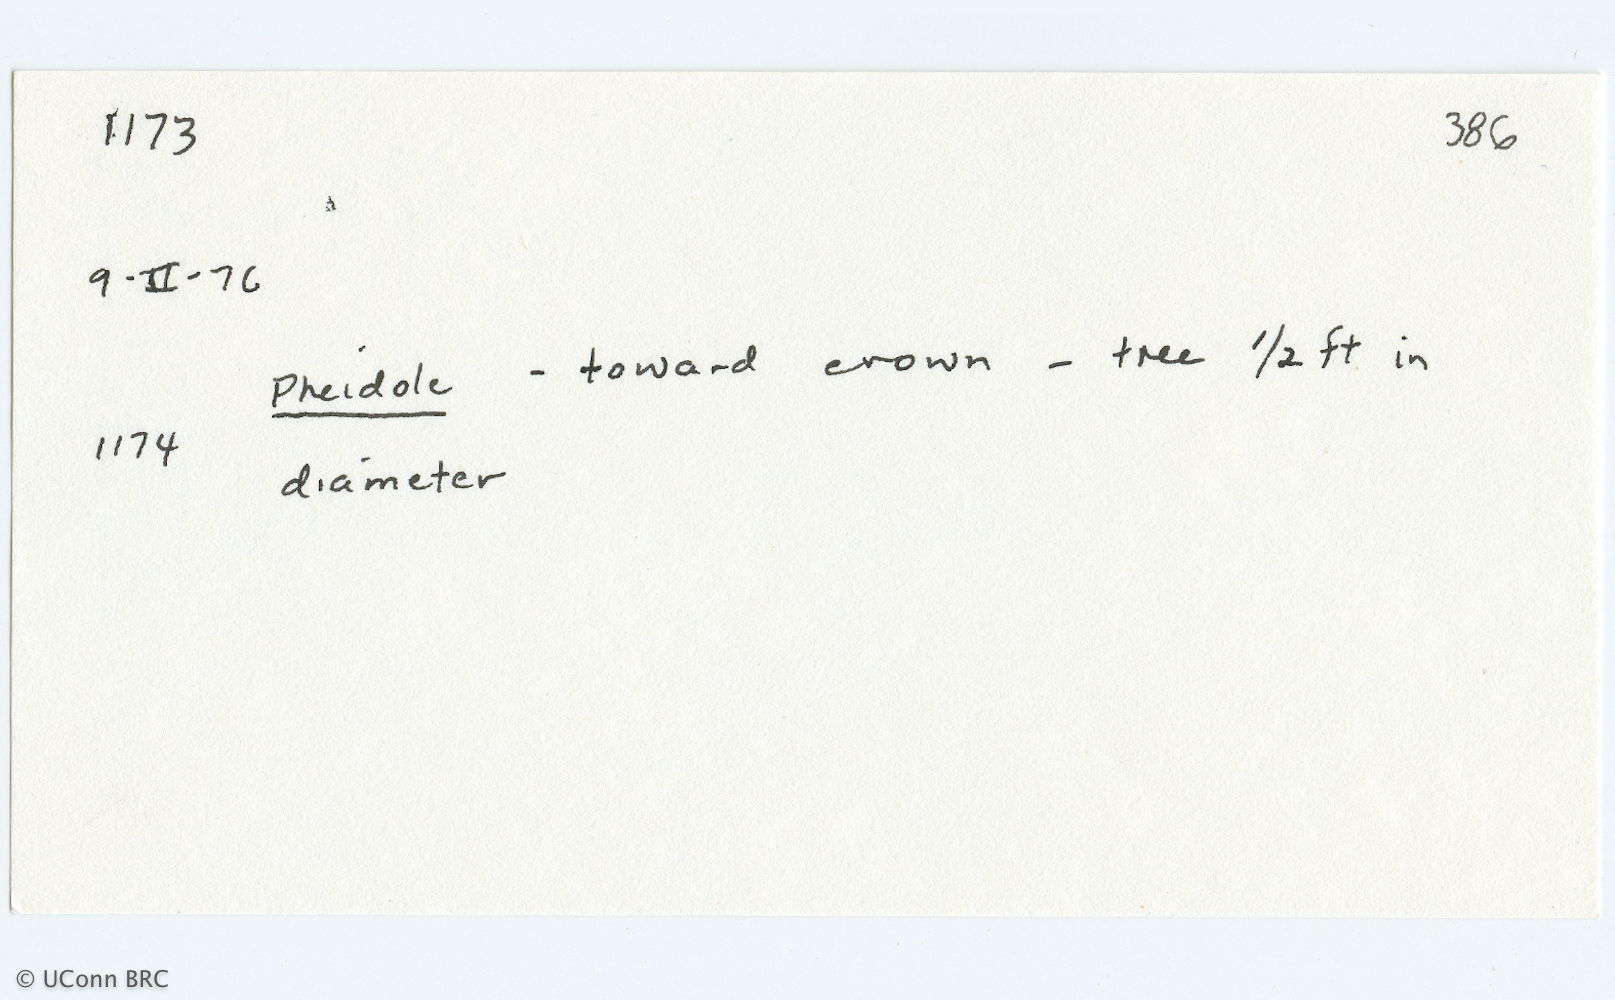 1173
386
9-II-76
Pheidole - toward crown - tree 1/2 ft in
1174
diameter
© UConn BRC